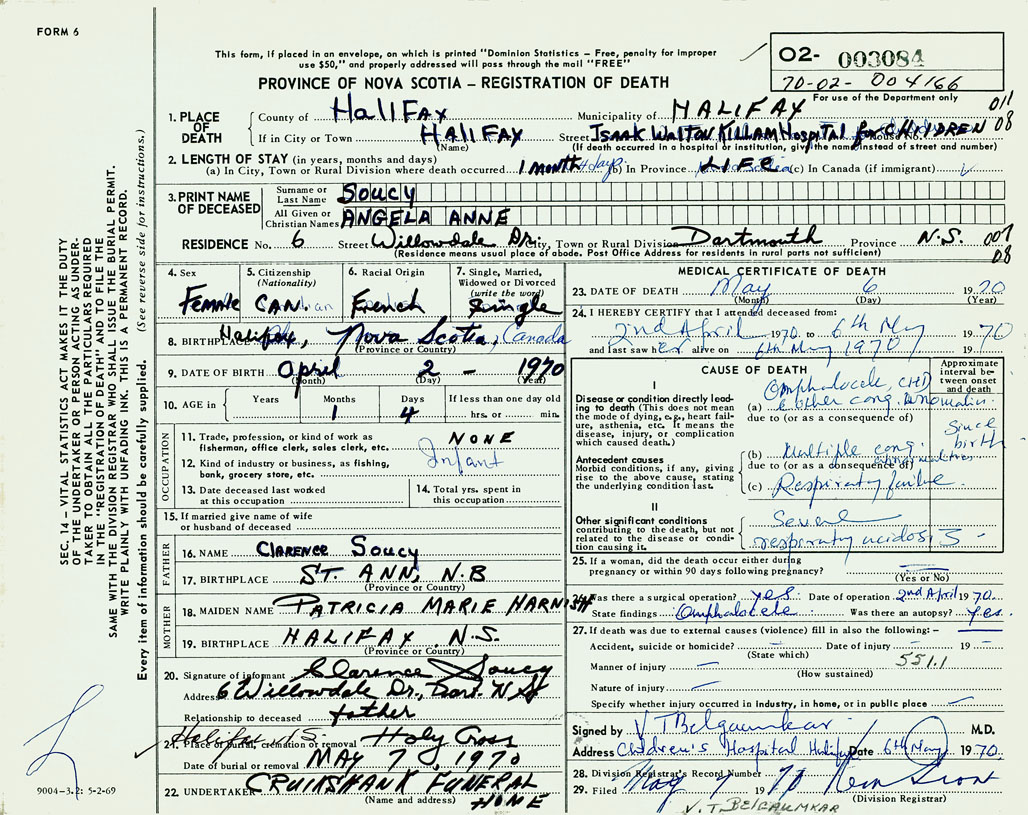 FORM 6
This form, if placed in an envelope, on which is printed "Dominion Statistics – Free, penalty for improper
use $50," and properly addressed will pass through the mail "FREE"
PROVINCE OF NOVA SCOTIA – REGISTRATION OF DEATH
02- 003084
70-02- 004166
For use of the Department only
SEC. 14 – VITAL STATISTICS ACT MAKES IT THE DUTY
OF THE UNDERTAKER OR PERSON ACTING AS UNDER-
TAKER TO OBTAIN ALL THE PARTICULARS REQUIRED
IN THE "REGISTRATION OF DEATH" AND TO FILE THE
SAME WITH THE DIVISION REGISTRAR WHO SHALL ISSUE THE BURIAL PERMIT.
WRITE PLAINLY WITH UNFADING INK. THIS IS A PERMANENT RECORD.
Every item of information should be carefully supplied. (See reverse side for instructions.)
1. PLACE OF DEATH
County of HALIFAX Municipality of HALIFAX 011
If in City or Town HALIFAX Street Isaak Walton Killam Hospital for CHILDREN 08
(Name) (If death occurred in a hospital or institution, give the name instead of street and number)
2. LENGTH OF STAY (in years, months and days)
(a) In City, Town or Rural Division where death occurred 1 month 4 days (b) In Province LIFE (c) In Canada (if immigrant)
3. PRINT NAME OF DECEASED
Surname or Last Name SOUCY
All Given or Christian Names ANGELA ANNE
RESIDENCE No. 6 Street Willowdale Dr. City, Town or Rural Division Dartmouth Province N.S. 007
(Residence means usual place of abode. Post Office Address for residents in rural parts not sufficient) 08
4. Sex Female
5. Citizenship (Nationality) CAN.
6. Racial Origin French
7. Single, Married, Widowed or Divorced (write the word) Single
8. BIRTHPLACE Halifax, Nova Scotia, Canada
(Province or Country)
9. DATE OF BIRTH April 2 – 1970
(Month) (Day) (Year)
10. AGE in Years Months 1 Days 4 If less than one day old
hrs. or min.
OCCUPATION
11. Trade, profession, or kind of work as fisherman, office clerk, sales clerk, etc. NONE
12. Kind of industry or business, as fishing, bank, grocery store, etc. Infant
13. Date deceased last worked at this occupation
14. Total yrs. spent in this occupation
15. If married give name of wife or husband of deceased
FATHER
16. NAME CLARENCE SOUCY
17. BIRTHPLACE ST. ANN, N.B
(Province or Country)
MOTHER
18. MAIDEN NAME PATRICIA MARIE HARNISH
19. BIRTHPLACE HALIFAX N.S.
(Province or Country)
20. Signature of informant Clarence Soucy
Address 6 Willowdale Dr., Dart. N.S
Relationship to deceased father
Halifax N.S.
21. Place of burial, cremation or removal Holy Cross
Date of burial or removal MAY 7, 1970
22. UNDERTAKER CRUIKSHANK FUNERAL HOME
(Name and address)
9004-3.2: 5-2-69
MEDICAL CERTIFICATE OF DEATH
23. DATE OF DEATH May 6 1970
(Month) (Day) (Year)
24. I HEREBY CERTIFY that I attended deceased from:
2nd April 1970 to 6th May 1970
and last saw her alive on 6th May 1970 19
CAUSE OF DEATH
Approximate interval between onset and death
I
Disease or condition directly leading to death (This does not mean the mode of dying, e.g., heart failure, asthenia, etc. It means the disease, injury, or complication which caused death.)
(a) Omphalocele, CHD & other cong.
due to (or as a consequence of)
Since birth
Antecedent causes
Morbid conditions, if any, giving rise to the above cause, stating the underlying condition last.
(b) Multiple cong.
due to (or as a consequence of)
(c) Respiratory failure
II
Other significant conditions contributing to the death, but not related to the disease or condition causing it.
Severe
respiratory acidosis
25. If a woman, did the death occur either during pregnancy or within 90 days following pregnancy? –
(Yes or No)
26. Was there a surgical operation? yes Date of operation 2nd April 1970.
State findings Omphalocele Was there an autopsy? Yes.
27. If death was due to external causes (violence) fill in also the following: –
Accident, suicide or homicide? Date of injury – 19 –
(State which) 551.1
Manner of injury –
(How sustained)
Nature of injury –
Specify whether injury occurred in industry, in home, or in public place –
Signed by V T Belgaumkar M.D.
Address Children's Hospital Halifax Date 6th May 1970.
28. Division Registrar's Record Number
29. Filed May 7 1970
(Division Registrar)
V.T. BELGAUMKAR